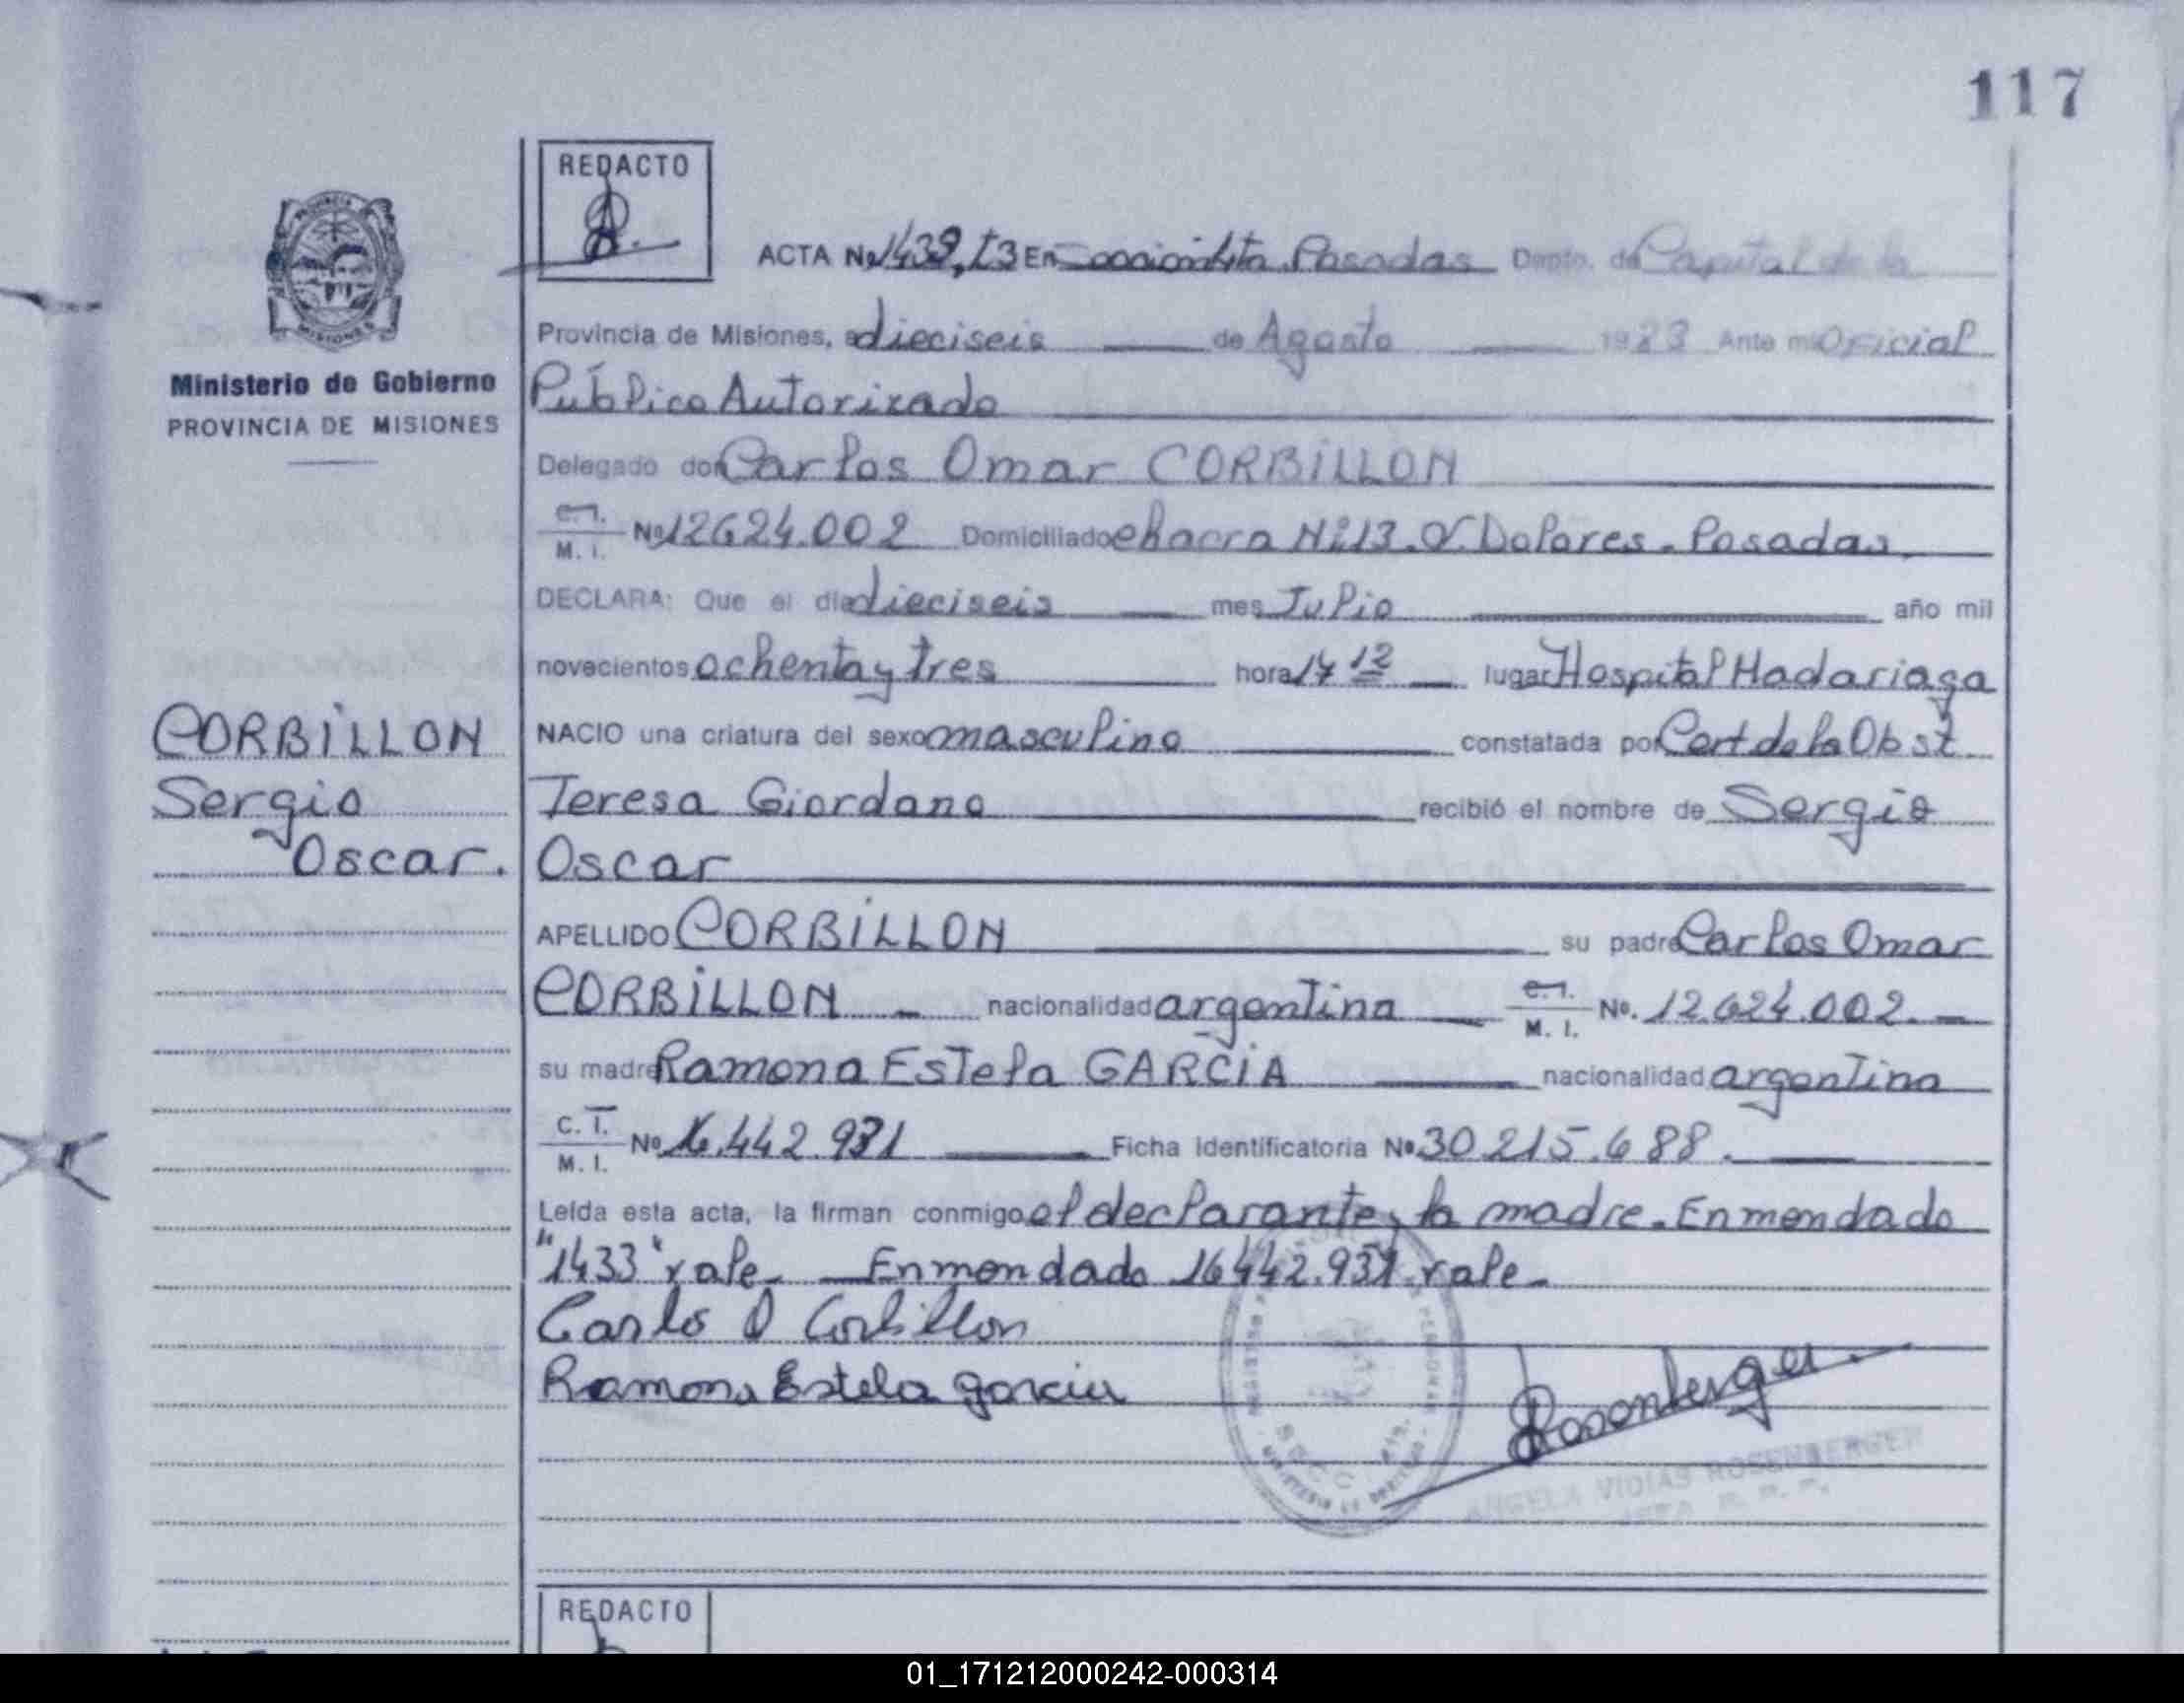 117
REDACTO
ACTA No 1433, T3 En Posadas Dpto. de Capital de la
Provincia de Misiones, a dieciseis de Agosto 1983 Ante mi Oficial
Público Autorizado
Ministerio de Gobierno
PROVINCIA DE MISIONES
Delegado don Carlos Omar CORBILLON
M. I. No 12624.002 Domiciliado chacra Nº 13. V. Dolores. Posadas
DECLARA: Que el día dieciseis mes Julio año mil
novecientos ochenta y tres hora 17 12 lugar Hospital Madariaga
NACIO una criatura del sexo masculino constatada por Cert de la Obst.
Teresa Giordano recibió el nombre de Sergio
Oscar
CORBILLON
Sergio
Oscar.
APELLIDO CORBILLON su padre Carlos Omar
CORBILLON - nacionalidad argentina C. I. M. I. No. 12.624.002.-
su madre Ramona Estela GARCIA nacionalidad argentina
C. I. M. I. No 16.442.931 Ficha identificatoria No 30.215.688.
Leída esta acta, la firman conmigo el declarante y la madre. Enmendado
"1433" vale. Enmendado 16442.931 vale.
Carlos O Corbillon
Ramona Estela garcia
Rosenberger
ANGELA VIDIAS ROSENBERGER
REDACTO
01_171212000242-000314